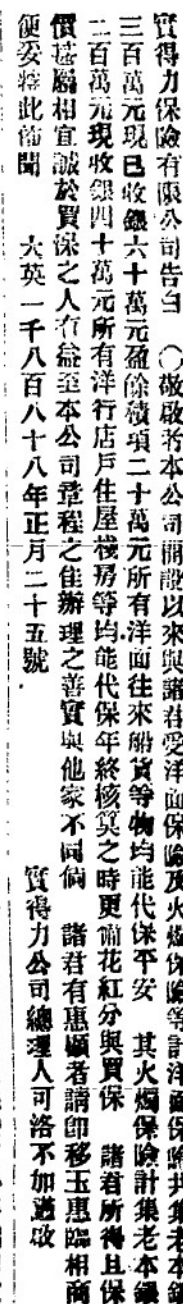 實得力保險有限公司告白　○敬啟者本公司開設以來與諸君受洋面保險及火燭保險等計洋面保險共集老本銀
三百萬元現已收銀六十萬元盈餘積項二十萬元所有洋面往來船貨等物均能代保平安　其火燭保險計集老本銀
二百萬元現收銀四十萬元所有洋行店戶住屋棧房等均能代保年終核算之時更備花紅分與買保　諸君所得且保
價甚屬相宜誠於買保之人有益至本公司章程之佳辦理之善實與他家不同倘　諸君有惠顧者請即移玉惠臨相商
便妥特此佈聞　大英一千八百八十八年正月二十五號　實得力公司總理人可洛不加啟